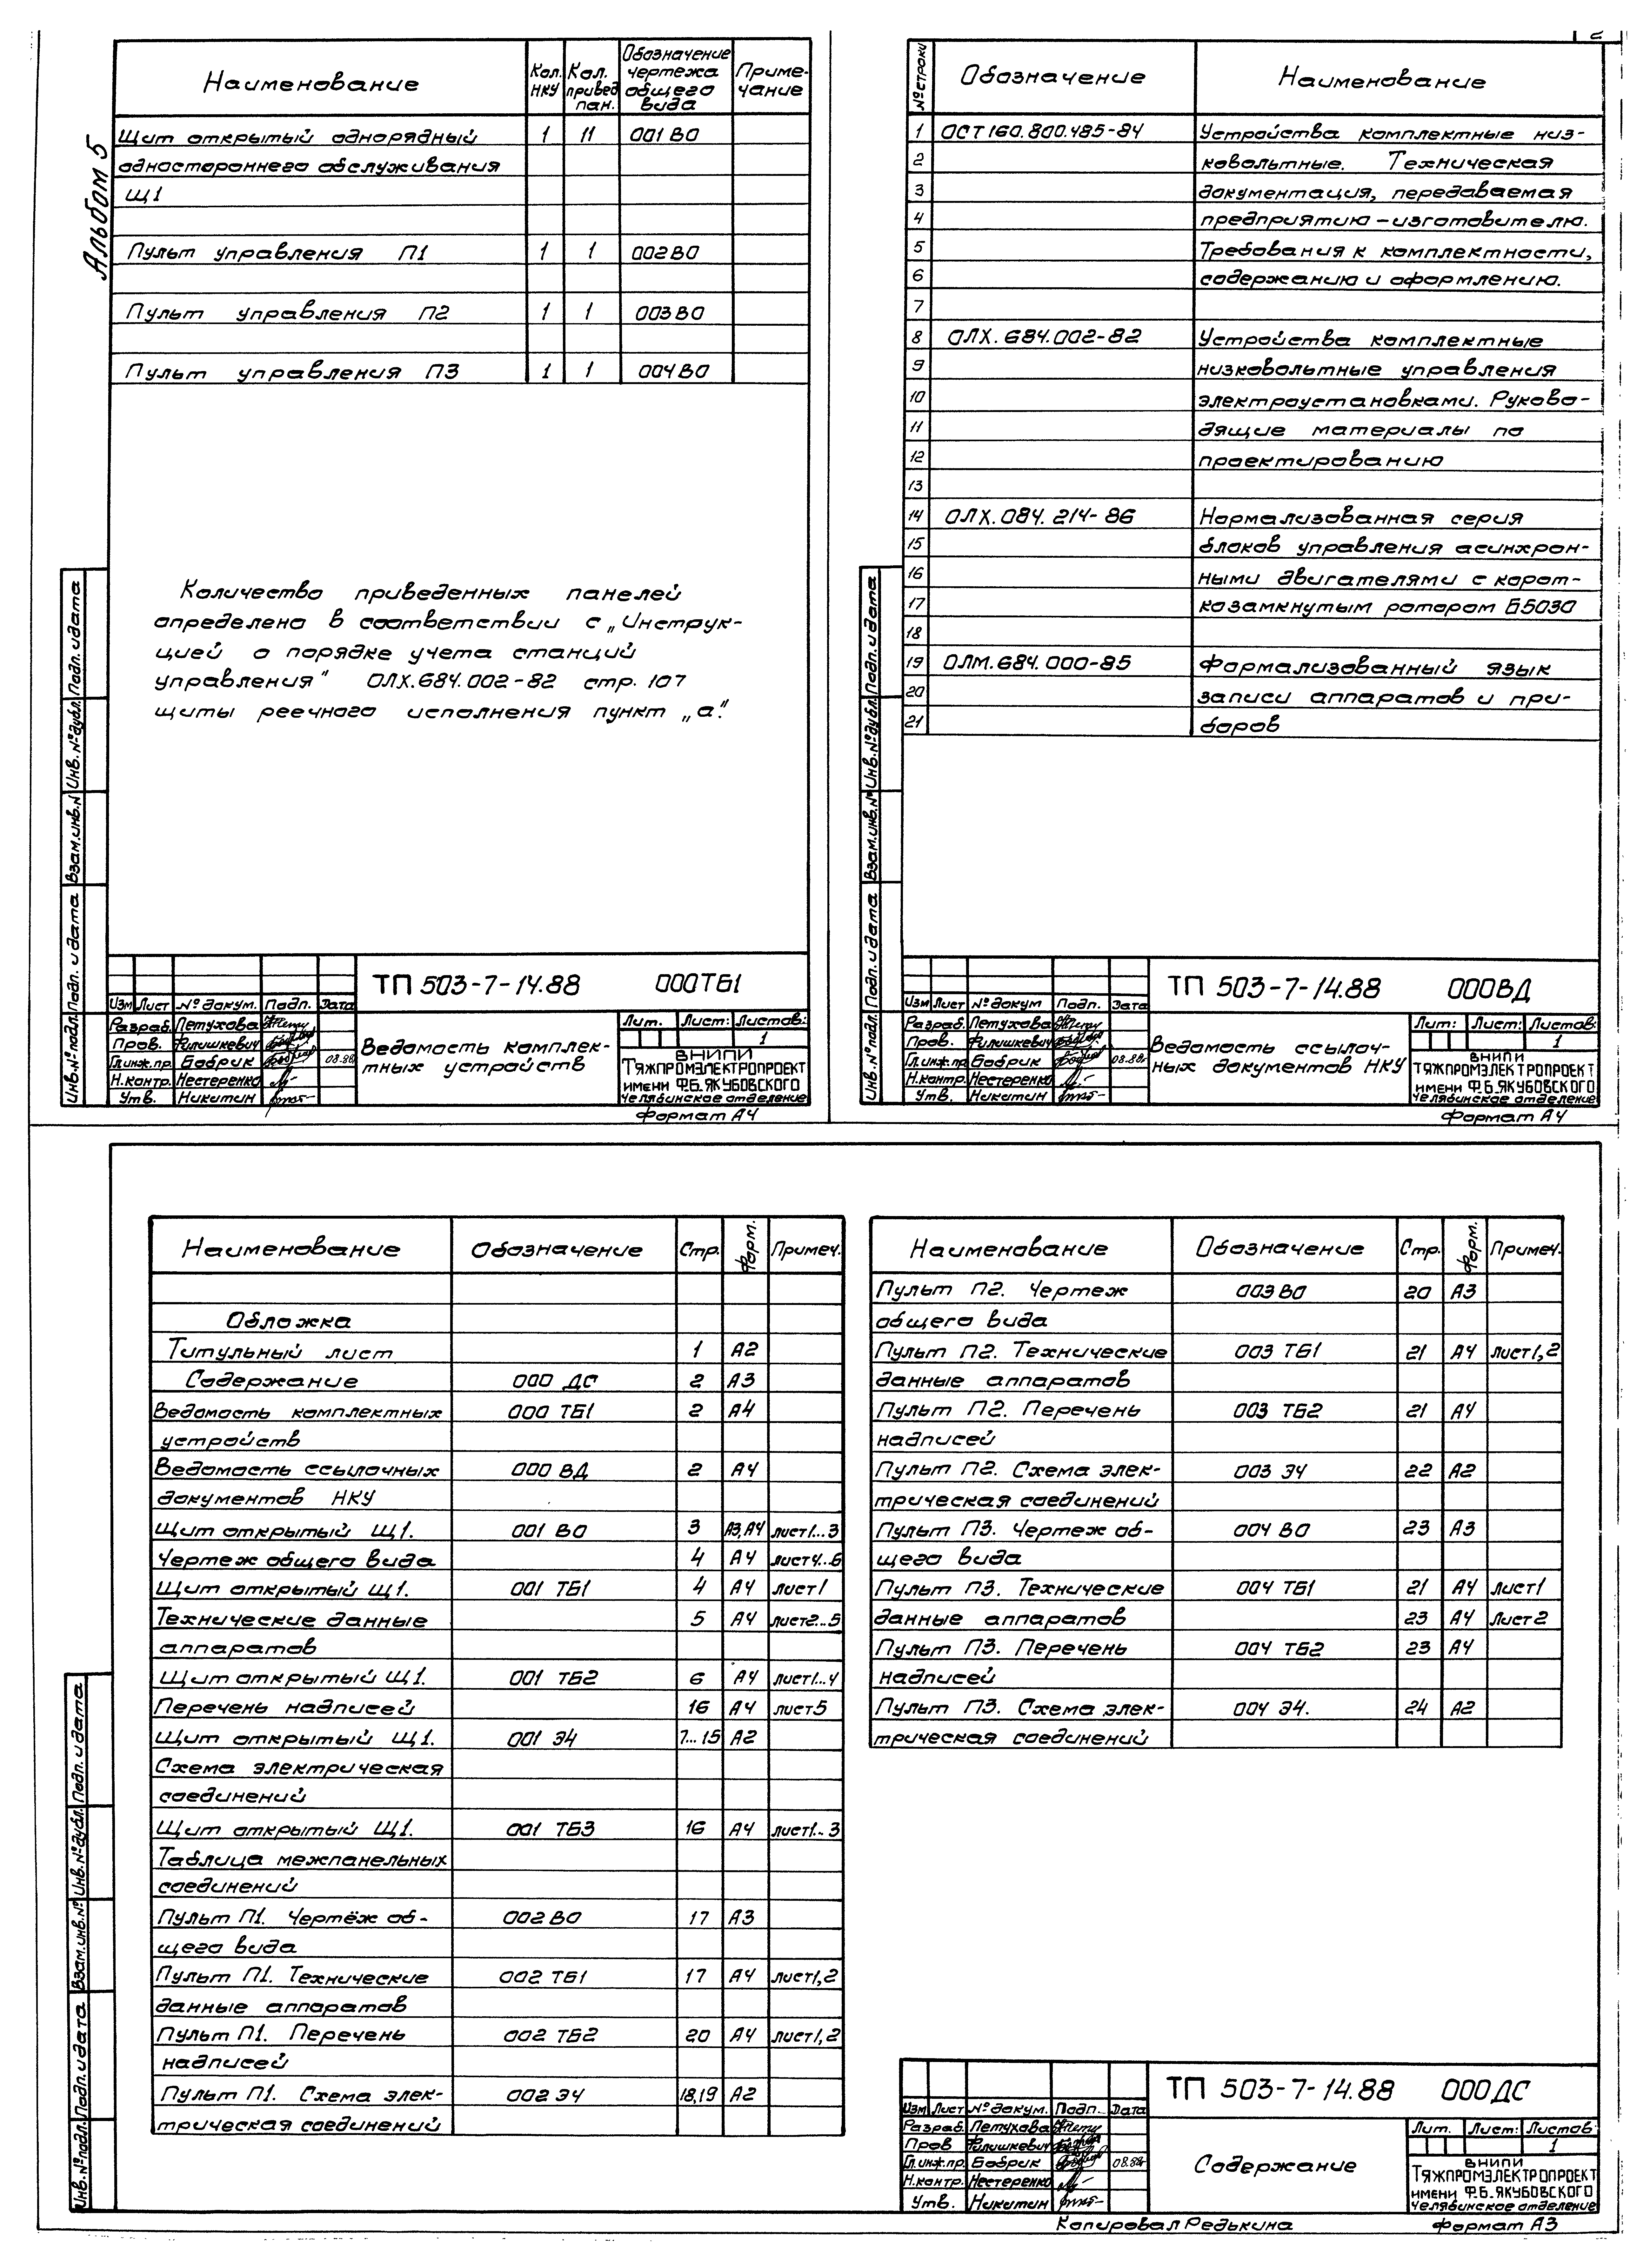 Альбом 5
Наименование Кол. НКУ Кол. привед. пан. Обозначение чертежа общего вида Приме-чание
Щит открытый однорядный 1 11 001 ВО
одностороннего обслуживания
Щ1
Пульт управления П1 1 1 002 ВО
Пульт управления П2 1 1 003 ВО
Пульт управления П3 1 1 004 ВО
Количество приведенных панелей
определено в соответствии с „Инструк-
цией о порядке учета станций
управления" ОЛХ.684.002-82 стр. 107
щиты реечного исполнения пункт „а".
Инв.№подл. Подп. и дата Взам.инв.№ Инв.№дубл. Подп. и дата
ТП 503-7-14.88 000ТБ1
Изм Лист № докум. Подп. Дата
Разраб. Петухова
Пров. Филишкевич
Гл.инж.пр. Бобрик 08.88г
Н.контр. Нестеренко
Утв. Никитин
Ведомость комплек-
тных устройств
Лит. Лист: Листов:
1
ВНИПИ
ТЯЖПРОМЭЛЕКТРОПРОЕКТ
ИМЕНИ Ф.Б.ЯКУБОВСКОГО
Челябинское отделение
Формат А4
№ строки Обозначение Наименование
1 ОСТ160.800.485-84 Устройства комплектные низ-
2 ковольтные. Техническая
3 документация, передаваемая
4 предприятию-изготовителю.
5 Требования к комплектности,
6 содержанию и оформлению.
7
8 ОЛХ.684.002-82 Устройства комплектные
9 низковольтные управления
10 электроустановками. Руково-
11 дящие материалы по
12 проектированию
13
14 ОЛХ.084.214-86 Нормализованная серия
15 блоков управления асинхрон-
16 ными двигателями с корот-
17 козамкнутым ротором Б5030
18
19 ОЛМ.684.000-85 Формализованный язык
20 записи аппаратов и при-
21 боров
Инв.№подл. Подп. и дата Взам.инв.№ Инв.№дубл. Подп. и дата
ТП 503-7-14.88 000ВД
Изм Лист № докум Подп. Дата
Разраб. Петухова
Пров. Филишкевич
Гл.инж.пр Бобрик 08.88г
Н.контр. Нестеренко
Утв. Никитин
Ведомость ссылоч-
ных документов НКУ
Лит: Лист: Листов:
1
ВНИПИ
ТЯЖПРОМЭЛЕКТРОПРОЕКТ
ИМЕНИ Ф.Б.ЯКУБОВСКОГО
Челябинское отделение
Формат А4
Наименование Обозначение Стр. Форм. Примеч.
Обложка
Титульный лист 1 А2
Содержание 000 ДС 2 А3
Ведомость комплектных 000 ТБ1 2 А4
устройств
Ведомость ссылочных 000 ВД 2 А4
документов НКУ
Щит открытый Щ1. 001 ВО 3 А3,А4 лист1...3
Чертеж общего вида 4 А4 лист4...6
Щит открытый Щ1. 001 ТБ1 4 А4 лист1
Технические данные 5 А4 лист2...5
аппаратов
Щит открытый Щ1. 001 ТБ2 6 А4 лист1...4
Перечень надписей 16 А4 лист5
Щит открытый Щ1. 001 Э4 7...15 А2
Схема электрическая
соединений
Щит открытый Щ1. 001 ТБ3 16 А4 лист1..3
Таблица межпанельных
соединений
Пульт П1. Чертёж об- 002 ВО 17 А3
щего вида
Пульт П1. Технические 002 ТБ1 17 А4 лист1,2
данные аппаратов
Пульт П1. Перечень 002 ТБ2 20 А4 лист1,2
надписей
Пульт П1. Схема элек- 002 Э4 18,19 А2
трическая соединений
Наименование Обозначение Стр. Форм. Примеч.
Пульт П2. Чертеж 003 ВО 20 А3
общего вида
Пульт П2. Технические 003 ТБ1 21 А4 лист1,2
данные аппаратов
Пульт П2. Перечень 003 ТБ2 21 А4
надписей
Пульт П2. Схема элек- 003 Э4 22 А2
трическая соединений
Пульт П3. Чертеж об- 004 ВО 23 А3
щего вида
Пульт П3. Технические 004 ТБ1 21 А4 лист1
данные аппаратов 23 А4 Лист2
Пульт П3. Перечень 004 ТБ2 23 А4
надписей
Пульт П3. Схема элек- 004 Э4. 24 А2
трическая соединений
Инв.№подл. Подп. и дата Взам.инв.№ Инв.№дубл. Подп. и дата
ТП 503-7-14.88 000ДС
Изм Лист № докум. Подп. Дата
Разраб. Петухова
Пров Филишкевич
Гл.инж.пр. Бобрик 08.88г
Н.контр. Нестеренко
Утв. Никитин
Содержание
Лит. Лист: Листов:
1
ВНИПИ
ТЯЖПРОМЭЛЕКТРОПРОЕКТ
ИМЕНИ Ф.Б.ЯКУБОВСКОГО
Челябинское отделение
Копировал Редькина Формат А3